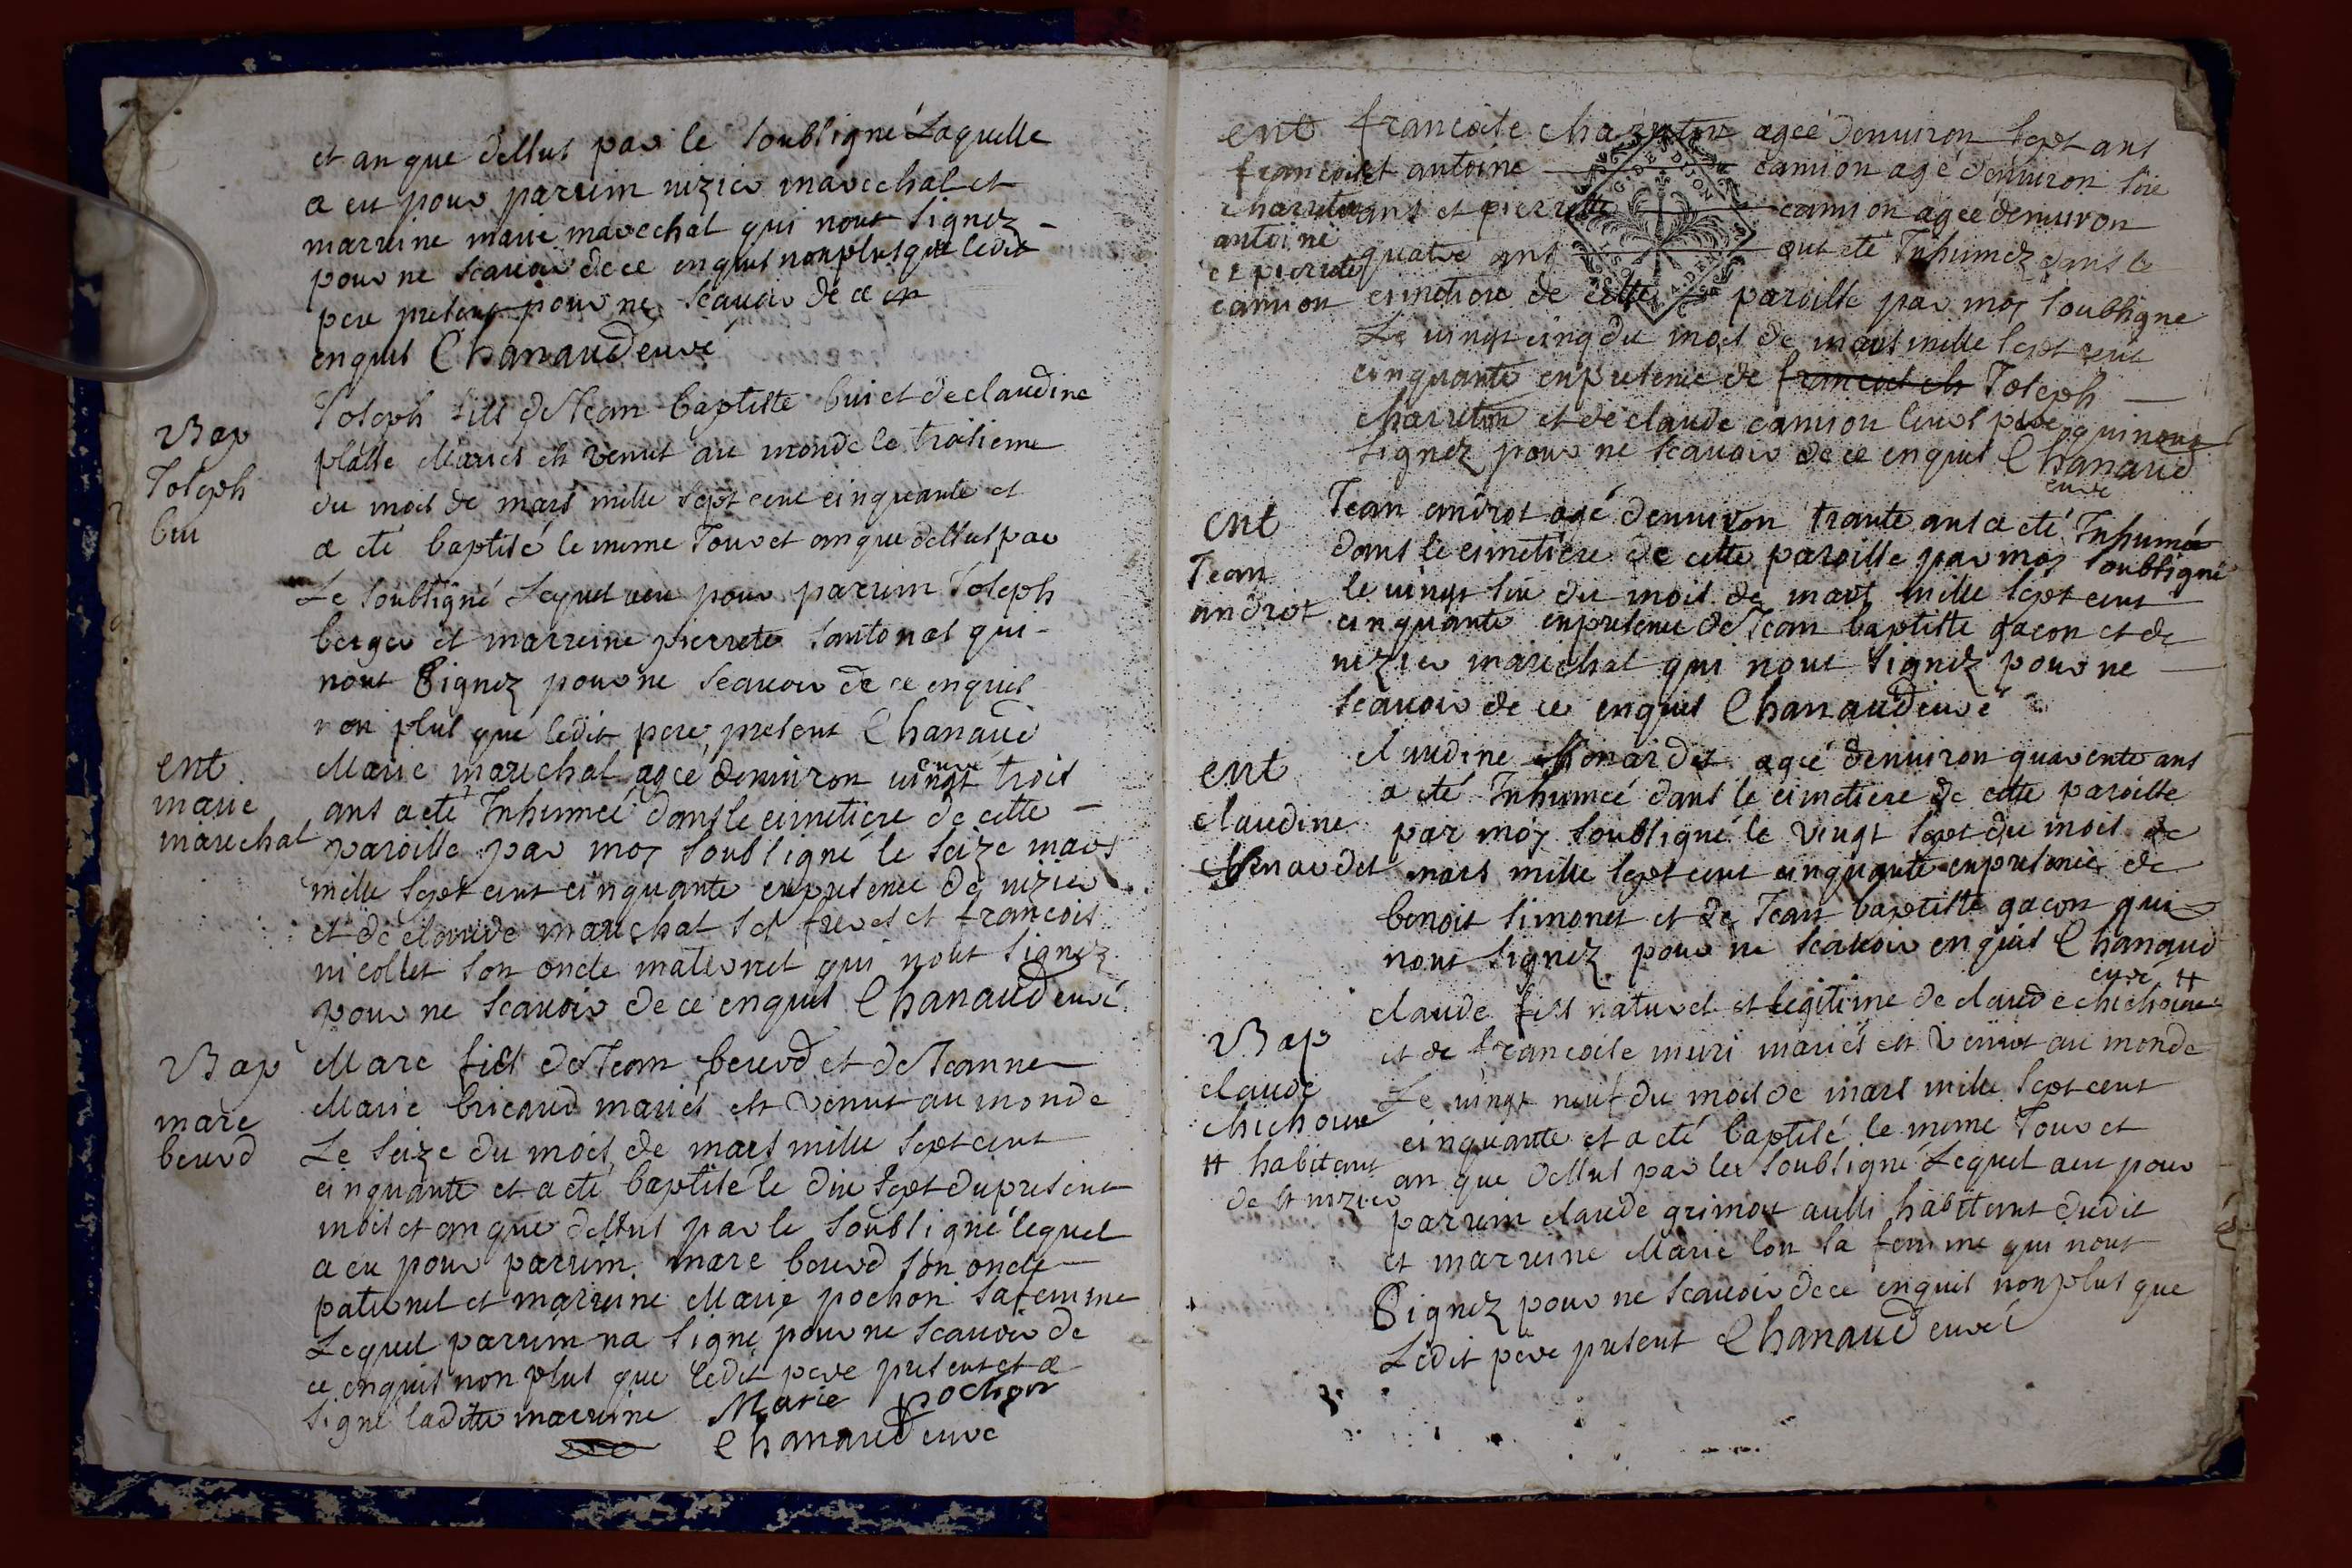 et an que dessus par le soubsigné Laquelle
a eu pour parrim nizier marechal et
marrine marie marechal qui nont signez
pour ne scavoir de ce enquis non plus que ledit
pere present pour ne scavoir de ce
enquis Chanaud curé
Bap
Joseph
bui
Joseph fils de Jean baptiste bui et de claudine
plasse Mariés est venut au monde le troisieme
du mois de mars mille sept cent cinquante et
a eté baptisé le meme Jour et an que dessus par
Le soubsigné Lequel a eu pour parrim Joseph
berger et marreine pierrete santonas qui
nont Signez pour ne scavoir de ce enquis
non plus que ledit pere present Chanaud
curé
ent
marie
marechal
Marie marechal agée denviron vingt trois
ans a eté Inhumeé dans le cimetiere de cette
paroisse par moy soubsigné le seize mars
mille sept cent cinquante en presence de nizier
et de claude marechal ses freres et francois
nicollet son oncle maternel qui nont signez
pour ne scavoir de ce enquis Chanaud curé
Bap
marc
beurd
Marc fils de Jean beurd et de Jeanne
Marie bricaud mariés est venut au monde
Le seize du mois de mars mille sept cent
cinquante et a eté baptisé le dix sept du present
mois et an que dessus par le soubsigné lequel
a eu pour parrim marc beurd son oncle
paternel et marreine Marie pochon sa femme
Lequel parrim na signé pour ne scavoir de
ce enquis non plus que ledit pere present et a
signé ladite marreine Marie pochon
Chanaud curé
ent
francoise
charreton
antoine
et pierrete
camion
francoise charreton agée denviron sept ans
et antoine camion agé denviron six
ans et pierrette camion agée denviron
quatre ans ont eté Inhumez dans le
cimetiere de cette paroisse par moy soubsigné
Le vingt cinq du mois de mars mille sept cent
cinquante en presence de francois ch Joseph
charreton et de claude camion leurs pere qui nont
signez pour ne scavoir de ce enquis Chanaud
curé
ent
Jean
androt
Jean androt agé denviron trante ans a eté Inhumé
dans le cimetiere de cette paroisse par moy soubsigné
le vingt six du mois de mars mille sept cent
cinquante en presence de Jean baptiste gacon et de
nizier marechal qui nont signez pour ne
scavoir de ce enquis Chanaud curé
ent
claudine
claudine agée denviron quarente ans
a eté Inhumeé dans le cimetiere de cette paroisse
par moy soubsigné le vingt sept du mois de
mars mille sept cent cinquante en presence de
benoit simonet et de Jean baptiste gacon qui
nont signez pour ne scavoir enquis Chanaud
curé
Bap
claude
chichoux
claude fils naturel et legitime de claude chichoux #
et de francoise muri mariés est venut au monde
Le vingt neuf du mois de mars mille sept cent
cinquante et a eté baptisé le meme Jour et
# habitant
de st nizier
an que dessus par le soubsigné Lequel a eu pour
parrim claude grimot aussi habitant dudit
et marreine Marie lon sa femme qui nont
Signez pour ne scavoir de ce enquis non plus que
Ledit pere present Chanaud curé